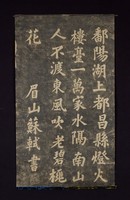 鄱陽湖上都昌縣燈火
樓臺一萬家水隔南山
人不渡東風吹老碧桃
花 眉山蘇軾書